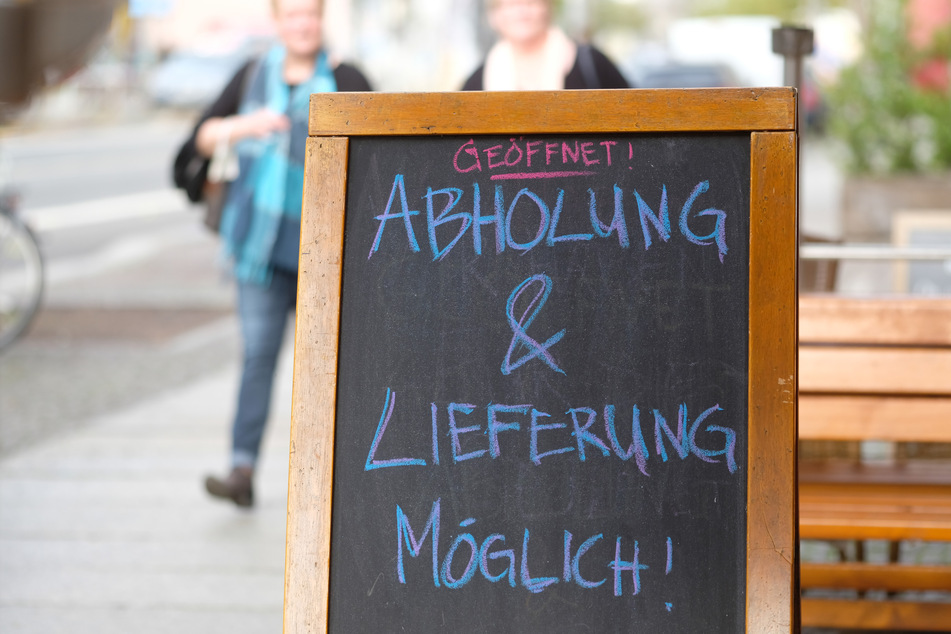 GEÖFFNET!
ABHOLUNG
&
LIEFERUNG
MÖGLICH!